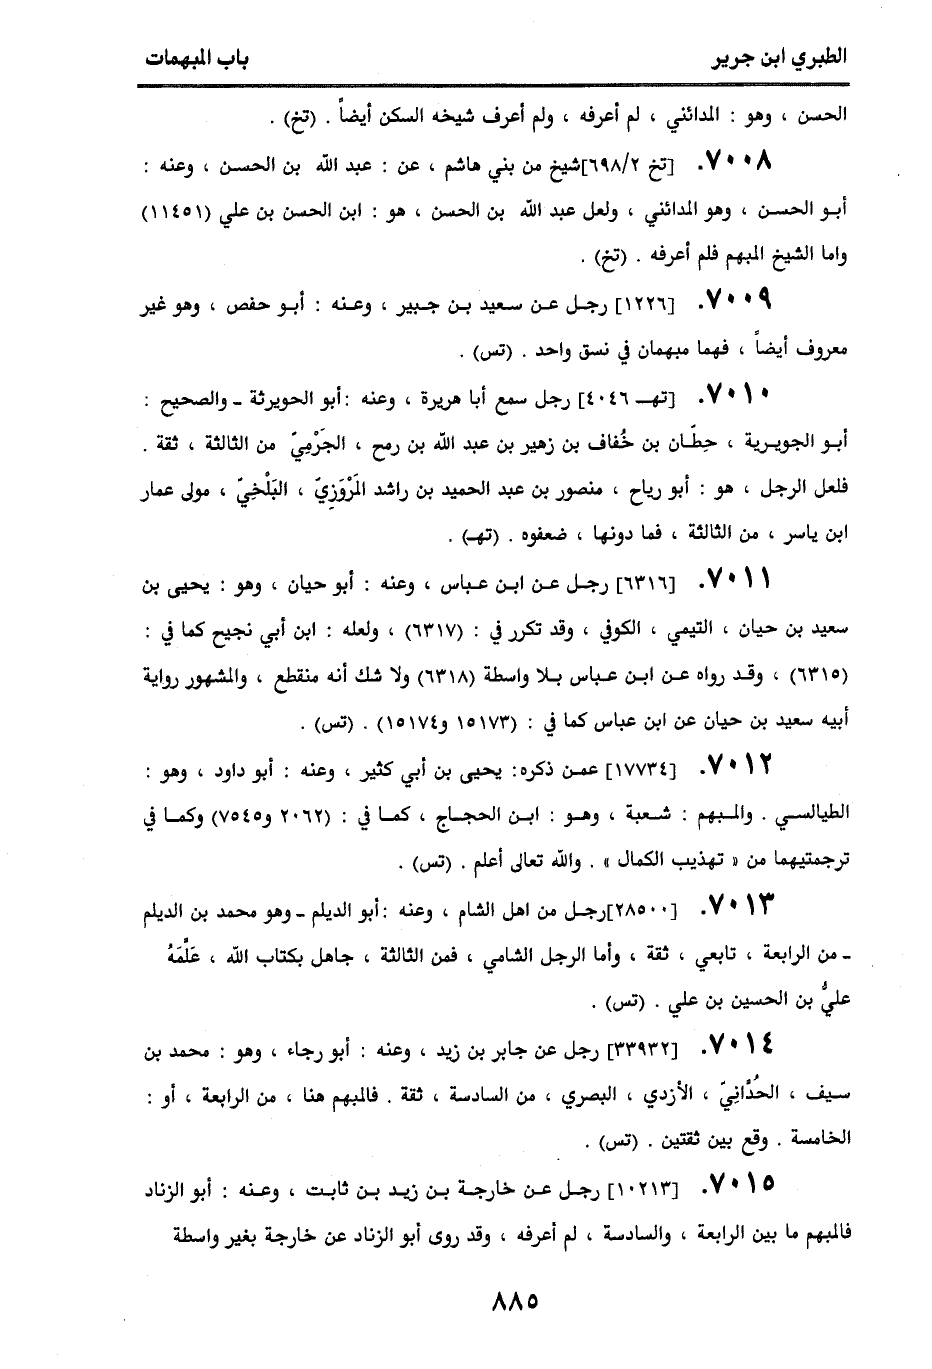 الطبري ابن جرير
باب المبهمات
الحسن ، وهو : المدائني ، لم أعرفه ، ولم أعرف شيخه السكن أيضاً . (تخ) .
٧٠٠٨. [تخ ٦٩٨/٢]شيخ من بني هاشم ، عن : عبد الله بن الحسن ، وعنه :
أبو الحسن ، وهو المدائني ، ولعل عبد الله بن الحسن ، هو : ابن الحسن بن علي (١١٤٥١)
واما الشيخ المبهم فلم أعرفه . (تخ) .
٧٠٠٩. [١٢٢٦] رجل عن سعيد بن جبير ، وعنه : أبو حفص ، وهو غير
معروف أيضاً ، فهما مبهمان في نسق واحد . (تس) .
٧٠١٠. [تهـ ٤٠٤٦] رجل سمع أبا هريرة ، وعنه :أبو الحويرثة ـ والصحيح :
أبو الجويرية ، حِطَّان بن خُفاف بن زهير بن عبد الله بن رمح ، الجَرْمِيّ من الثالثة ، ثقة .
فلعل الرجل ، هو : أبو رياح ، منصور بن عبد الحميد بن راشد المَرْوَزِيّ ، البَلْخِيّ ، مولى عمار
ابن ياسر ، من الثالثة ، فما دونها ، ضعفوه . (تهـ) .
٧٠١١. [٦٣١٦] رجل عن ابن عباس ، وعنه : أبو حيان ، وهو : يحيى بن
سعيد بن حيان ، التيمي ، الكوفي ، وقد تكرر في : (٦٣١٧) ، ولعله : ابن أبي نجيح كما في :
(٦٣١٥) ، وقد رواه عن ابن عباس بلا واسطة (٦٣١٨) ولا شك أنه منقطع ، والمشهور رواية
أبيه سعيد بن حيان عن ابن عباس كما في : (١٥١٧٣ و١٥١٧٤) . (تس) .
٧٠١٢. [١٧٧٣٤] عمن ذكره: يحيى بن أبي كثير ، وعنه : أبو داود ، وهو :
الطيالسي . والمبهم : شعبة ، وهو : ابن الحجاج ، كما في : (٢٠٦٢ و٧٥٤٥) وكما في
ترجمتيهما من « تهذيب الكمال » . والله تعالى أعلم . (تس) .
٧٠١٣. [٢٨٥٠٠]رجل من اهل الشام ، وعنه :أبو الديلم ـ وهو محمد بن الديلم
ـ من الرابعة ، تابعي ، ثقة ، وأما الرجل الشامي ، فمن الثالثة ، جاهل بكتاب الله ، عَلَّمَهُ
عليُّ بن الحسين بن علي . (تس) .
٧٠١٤. [٣٣٩٣٢] رجل عن جابر بن زيد ، وعنه : أبو رجاء ، وهو : محمد بن
سيف ، الحُدَّانِيّ ، الأزدي ، البصري ، من السادسة ، ثقة . فالمبهم هنا ، من الرابعة ، أو :
الخامسة . وقع بين ثقتين . (تس) .
٧٠١٥. [١٠٢١٣] رجل عن خارجة بن زيد بن ثابت ، وعنه : أبو الزناد
فالمبهم ما بين الرابعة ، والسادسة ، لم أعرفه ، وقد روى أبو الزناد عن خارجة بغير واسطة
٨٨٥